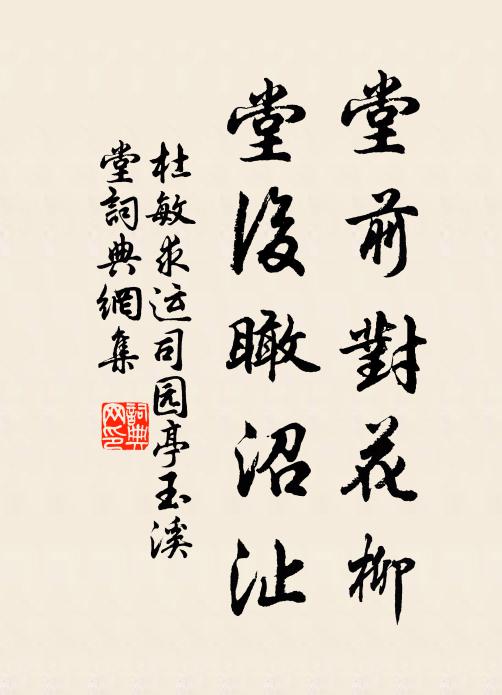 堂前對花柳
堂後瞰沼沚
杜敏求运司园亭玉溪
堂詞典網集
詞典
网印